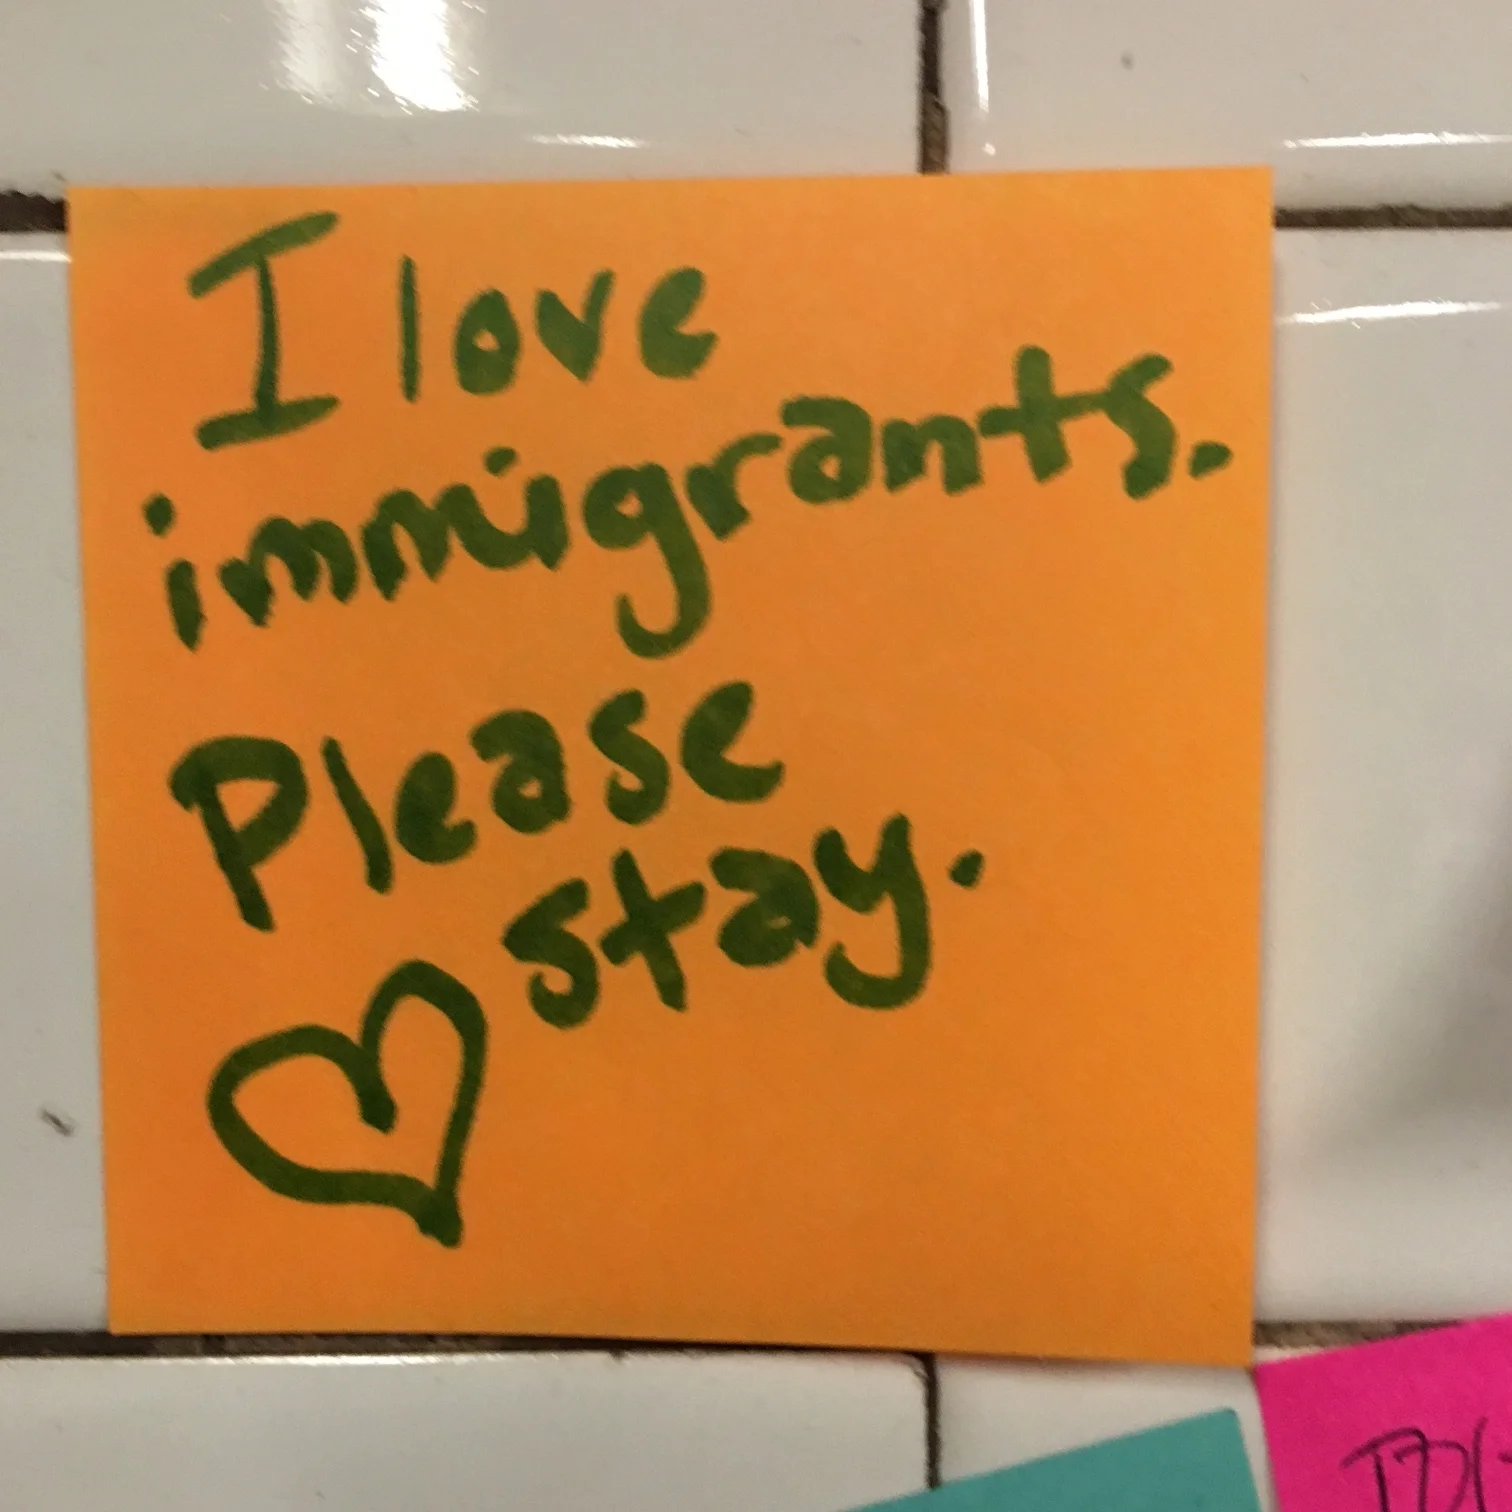 I love
immigrants.
Please
stay.